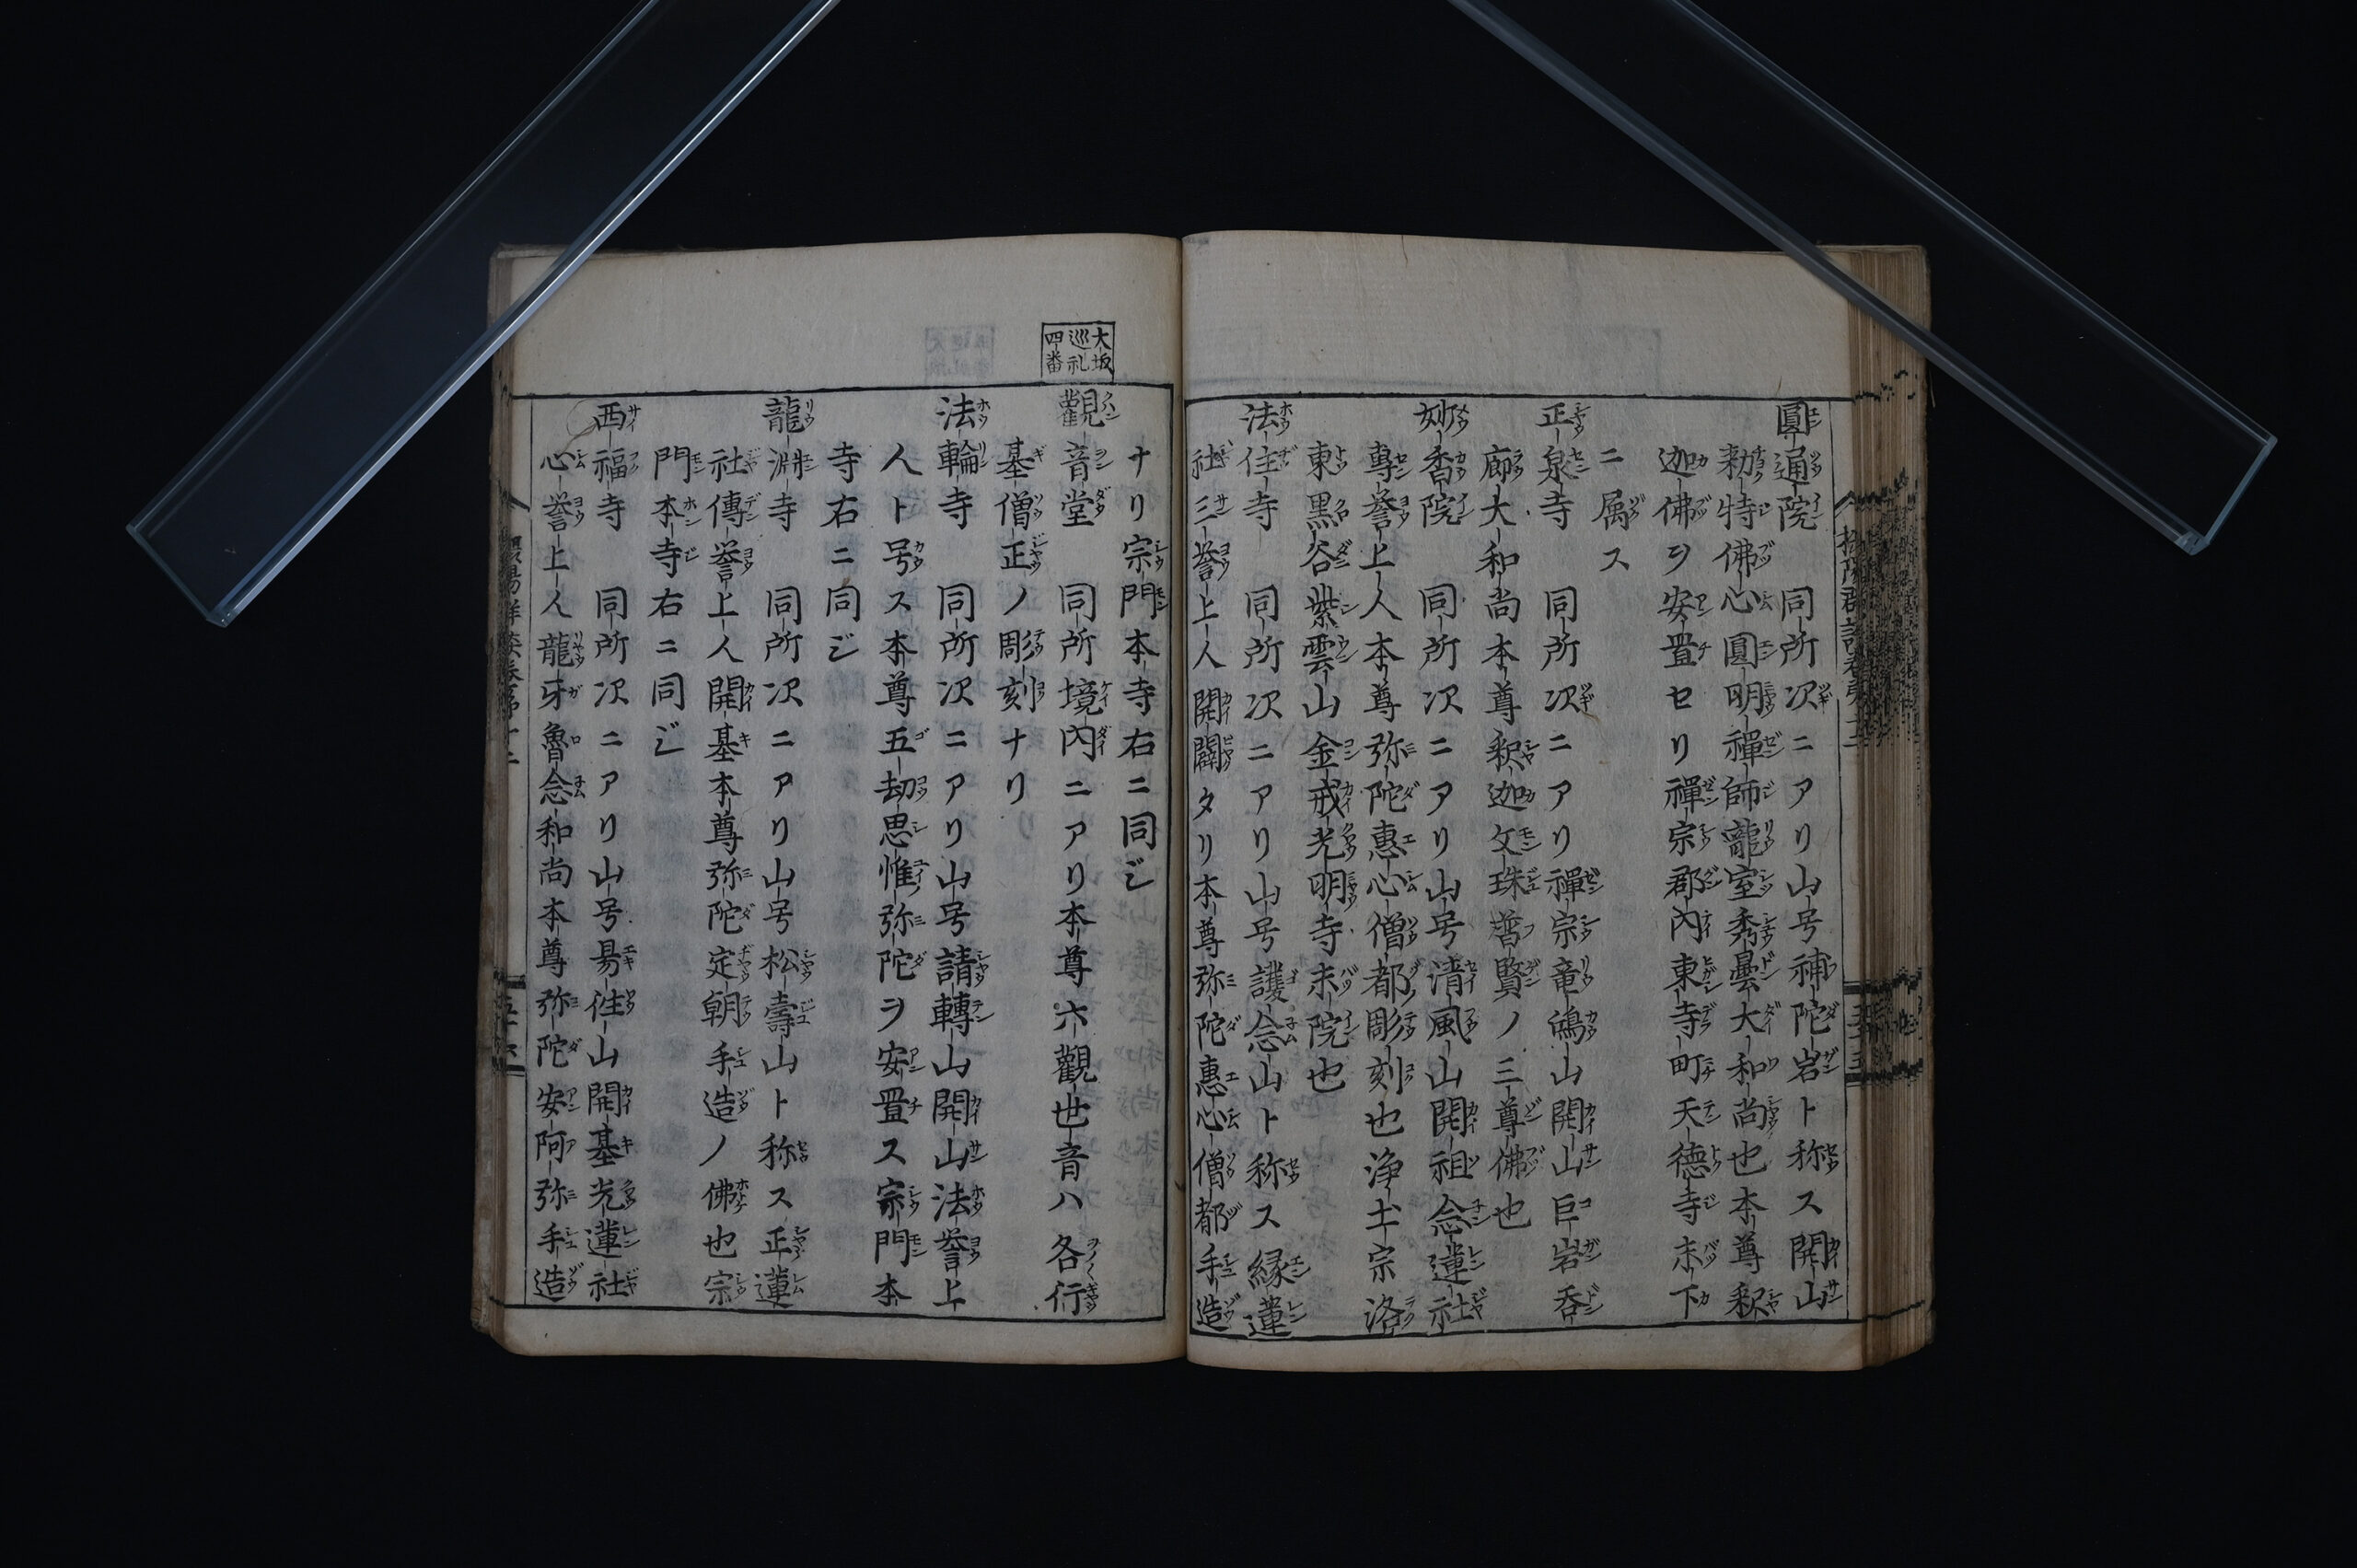 圓通院 同所次ニアリ山号補陀岩ト称ス開山
勅特佛心圓明禪師龍室秀曇大和尚也本尊釈
迦佛ヲ安置セリ禪宗郡内東寺町天徳寺末下
ニ属ス
正泉寺 同所次ニアリ禪宗竜鳴山開山巨岩呑
廓大和尚本尊釈迦文珠普賢ノ三尊佛也
妙香院 同所次ニアリ山号清風山開祖念蓮社
專誉上人本尊弥陀惠心僧都彫刻也浄土宗洛
東黒谷紫雲山金戒光明寺末院也
法住寺 同所次ニアリ山号護念山ト称ス縁蓮
社三誉上人開闢タリ本尊弥陀惠心僧都手造
ナリ宗門本寺右ニ同ジ
大坂
巡礼
四番
觀音堂 同所境内ニアリ本尊六觀世音ハ各行
基僧正ノ彫刻ナリ
法輪寺 同所次ニアリ山号請轉山開山法誉上
人ト号ス本尊五劫思惟弥陀ヲ安置ス宗門本
寺右ニ同ジ
龍淵寺 同所次ニアリ山号松壽山ト称ス正蓮
社傳誉上人開基本尊弥陀定朝手造ノ佛也宗
門本寺右ニ同ジ
西福寺 同所次ニアリ山号易往山開基光蓮社
心誉上人龍牙魯念和尚本尊弥陀安阿弥手造